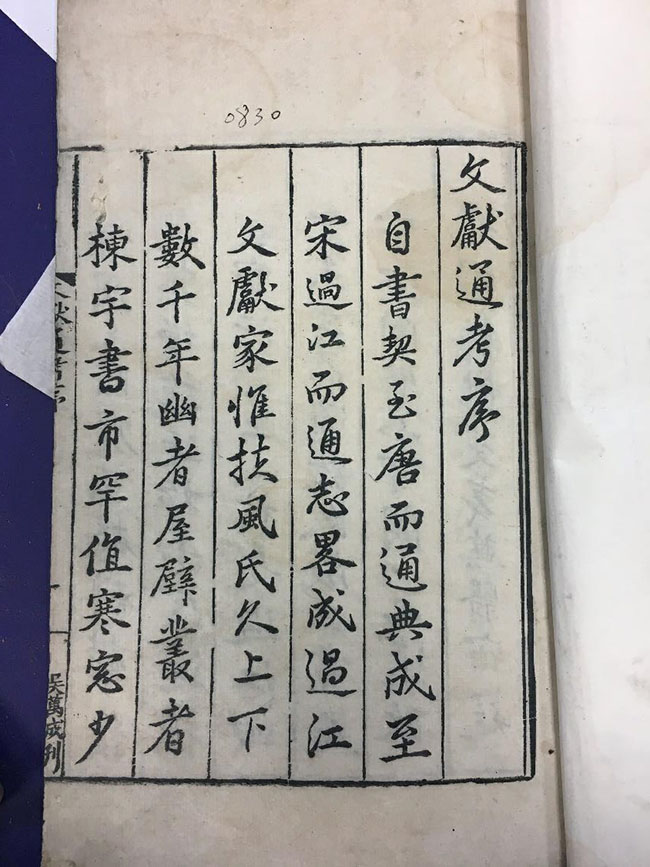 0830
文獻通考序
自書契至唐而通典成至
宋過江而通志畧成過江
文獻家惟扶風氏久上下
數千年幽者屋壁叢者
棟宇書市罕值寒窓少
文獻通考序
一
吳萬成刊